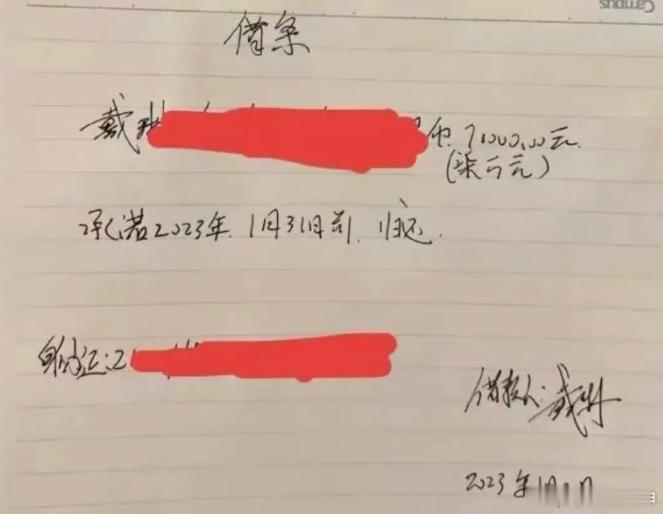 Campus
借条
戴 币 7000.00元
(柒仟元)
承诺2023年1月31日前归还.
身份证:2
借款人:戴
2023年1月 日